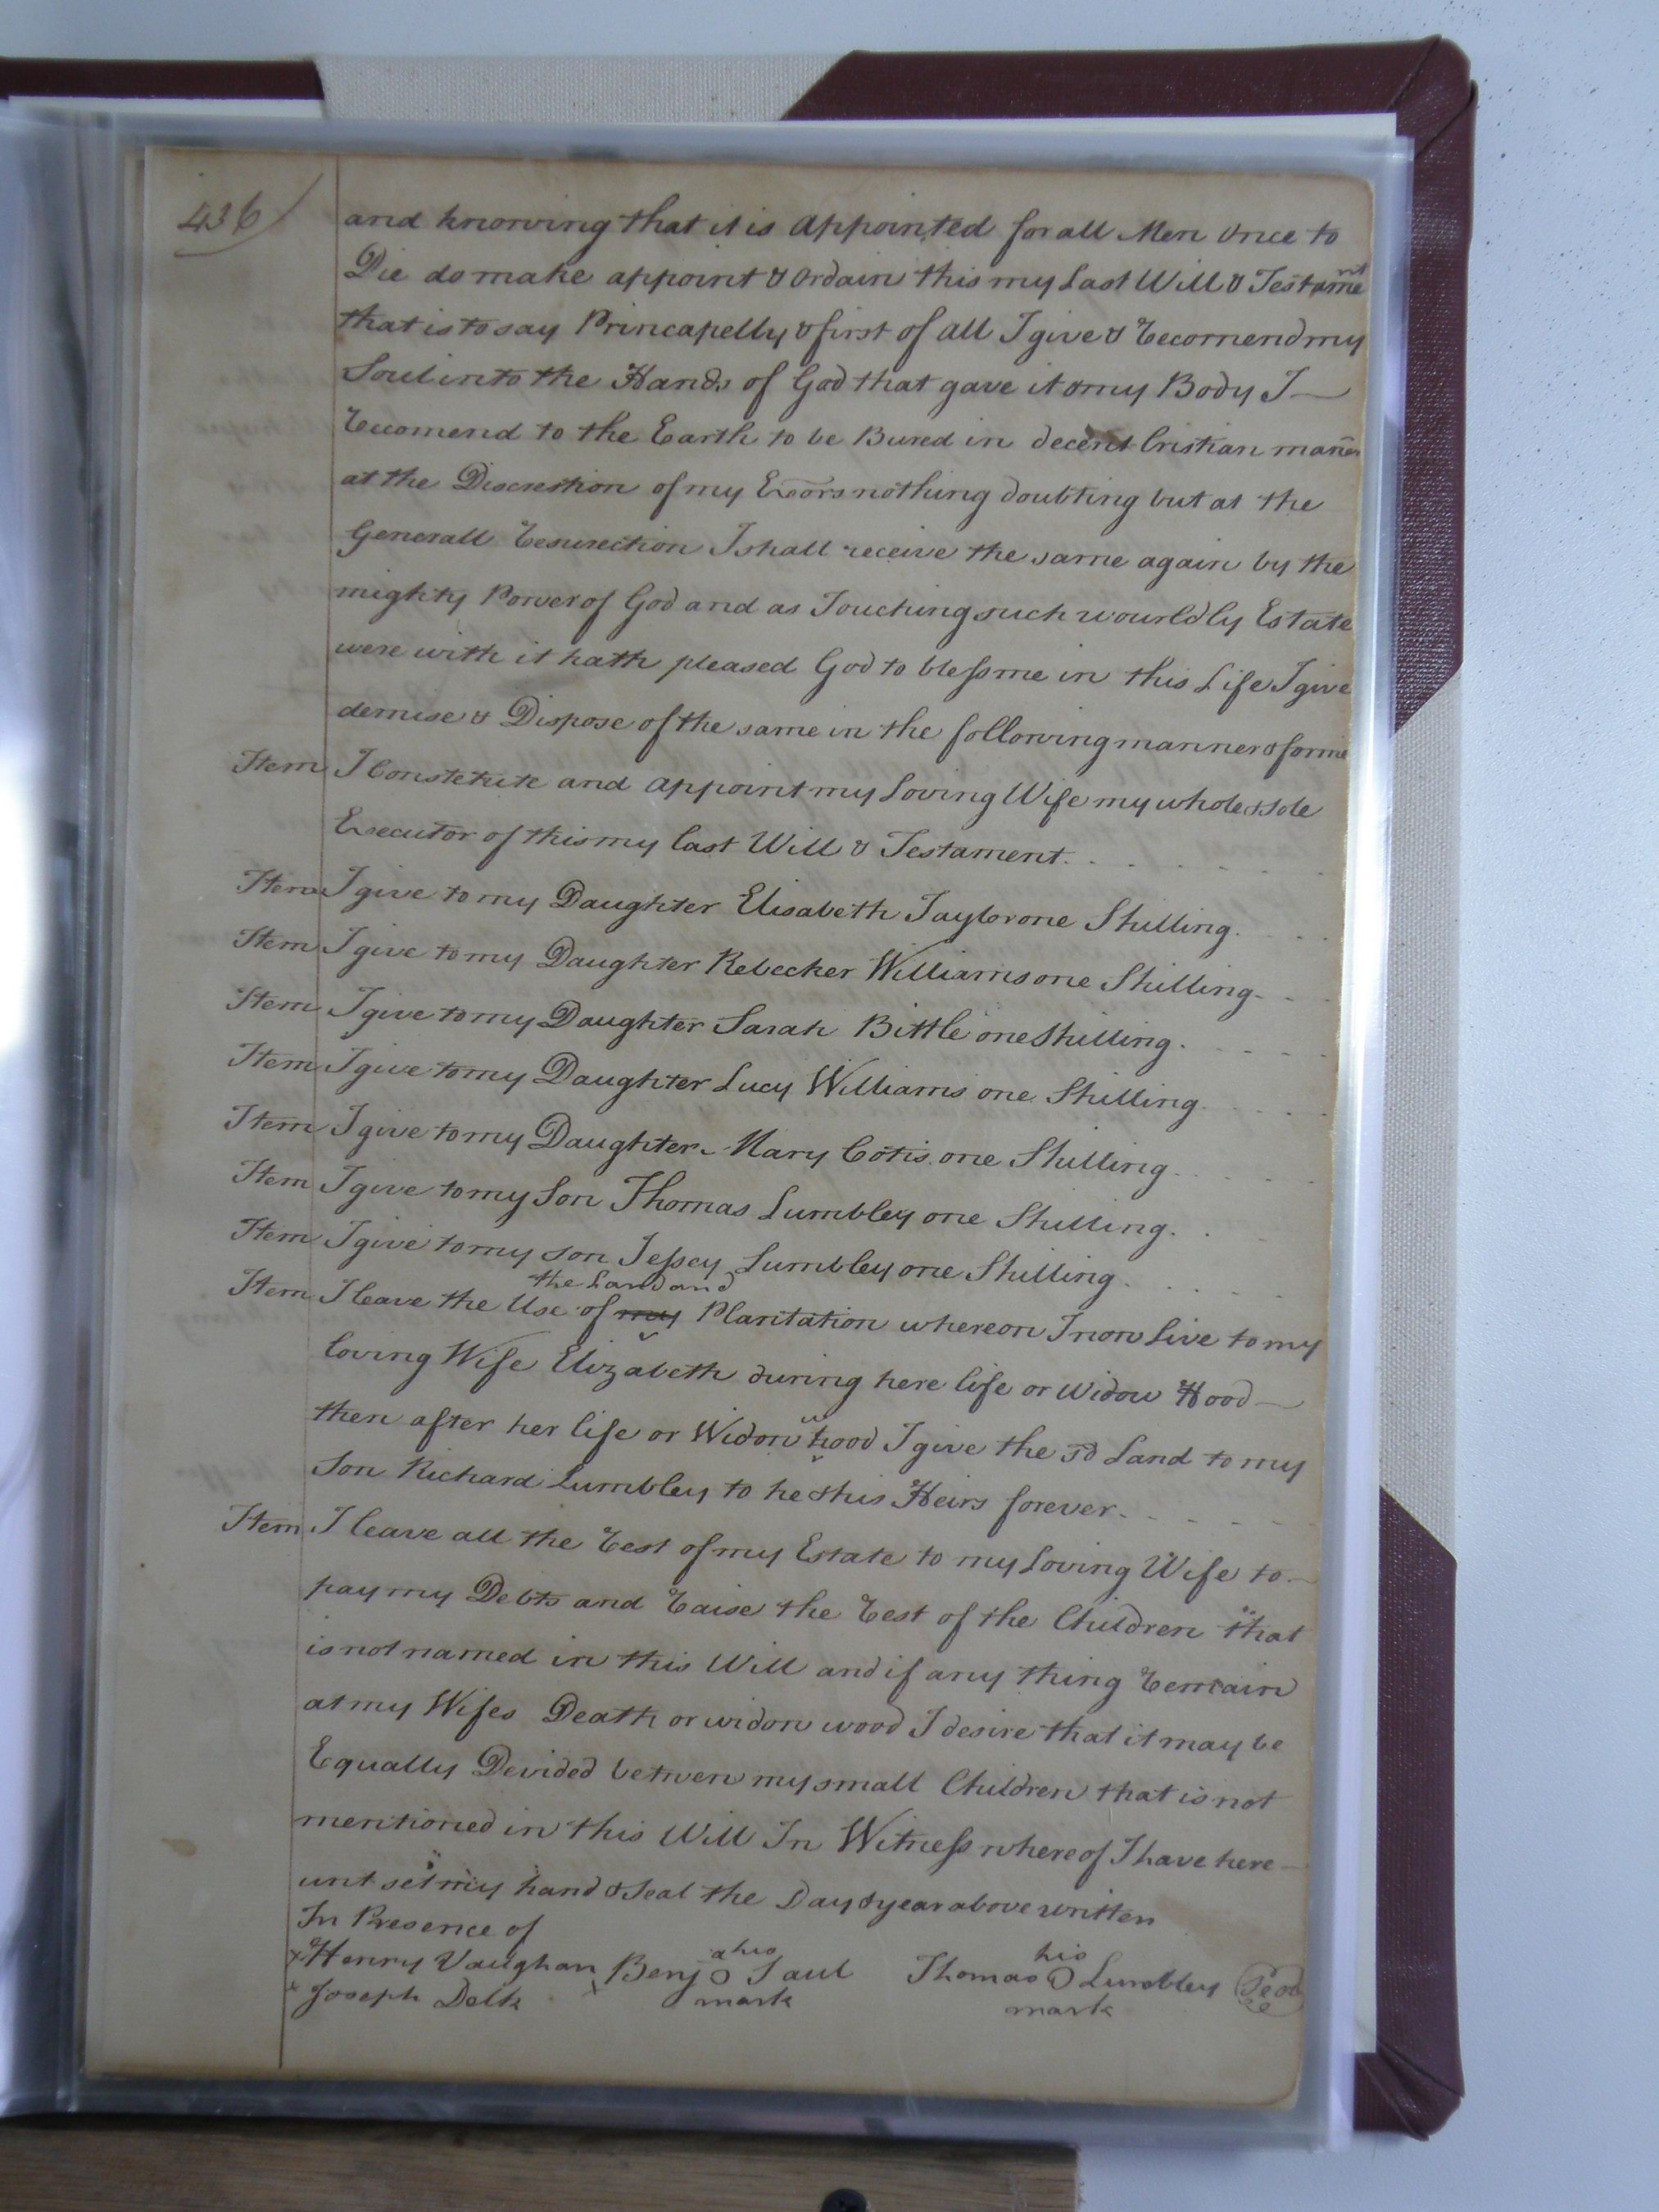 436
and knowing that it is appointed for all Men once to
Die do make appoint & ordain this my Last Will & Testament
that is to say Princapelly & first of all I give & Recomend my
Soul into the Hands of God that gave it & my Body I
Reccomend to the Earth to be Bured in decent Cristian maner
at the Discrestion of my Exors nothing doubting but at the
Generall Resurection I shall receive the same again by the
mighty Power of God and as Touching such wourldly Estate
were with it hath pleased God to bless me in this Life I give
demise & Dispose of the same in the following manner & forme
Item I Constetute and appoint my Loving Wife my whole & Sole
Executor of this my last Will & Testament.
Item I give to my Daughter Elisabeth Taylor one Shilling.
Item I give to my Daughter Rebecker Williams one Shilling.
Item I give to my Daughter Sarah Bittle one Shilling.
Item I give to my Daughter Lucy Williams one Shilling.
Item I give to my Daughter Mary Cotis one Shilling.
Item I give to my Son Thomas Lumbley one Shilling.
Item I give to my son Jessey Lumbley one Shilling.
the Land and
Item I leave the Use of my Plantation whereon I now Live to my
loving Wife Elizabeth during here life or Widow Hood
then after her life or Widow hood I give the sd Land to my
Son Richard Lumbley to he & his Heirs forever.
Item I leave all the Rest of my Estate to my Loving Wife to
pay my Debts and Raise the Rest of the Children that
is not named in this Will and if any thing Remain
at my Wifes Death or widow wood I desire that it may be
Equally Devided betwen my small Children that is not
mentioned in this Will In Witness whereof I have here
unt set my hand & Seal the Day & year above written
In Presence of
Henry Vaughan Benja his Saul Thomas his Lumbley Seal
Joseph Delk mark mark